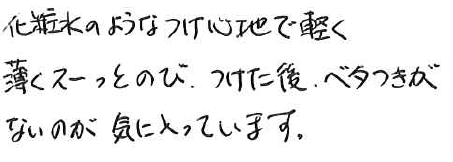 化粧水のようなつけ心地で軽く
薄くスーっとのび、つけた後、ベタつきが
ないのが気に入っています。